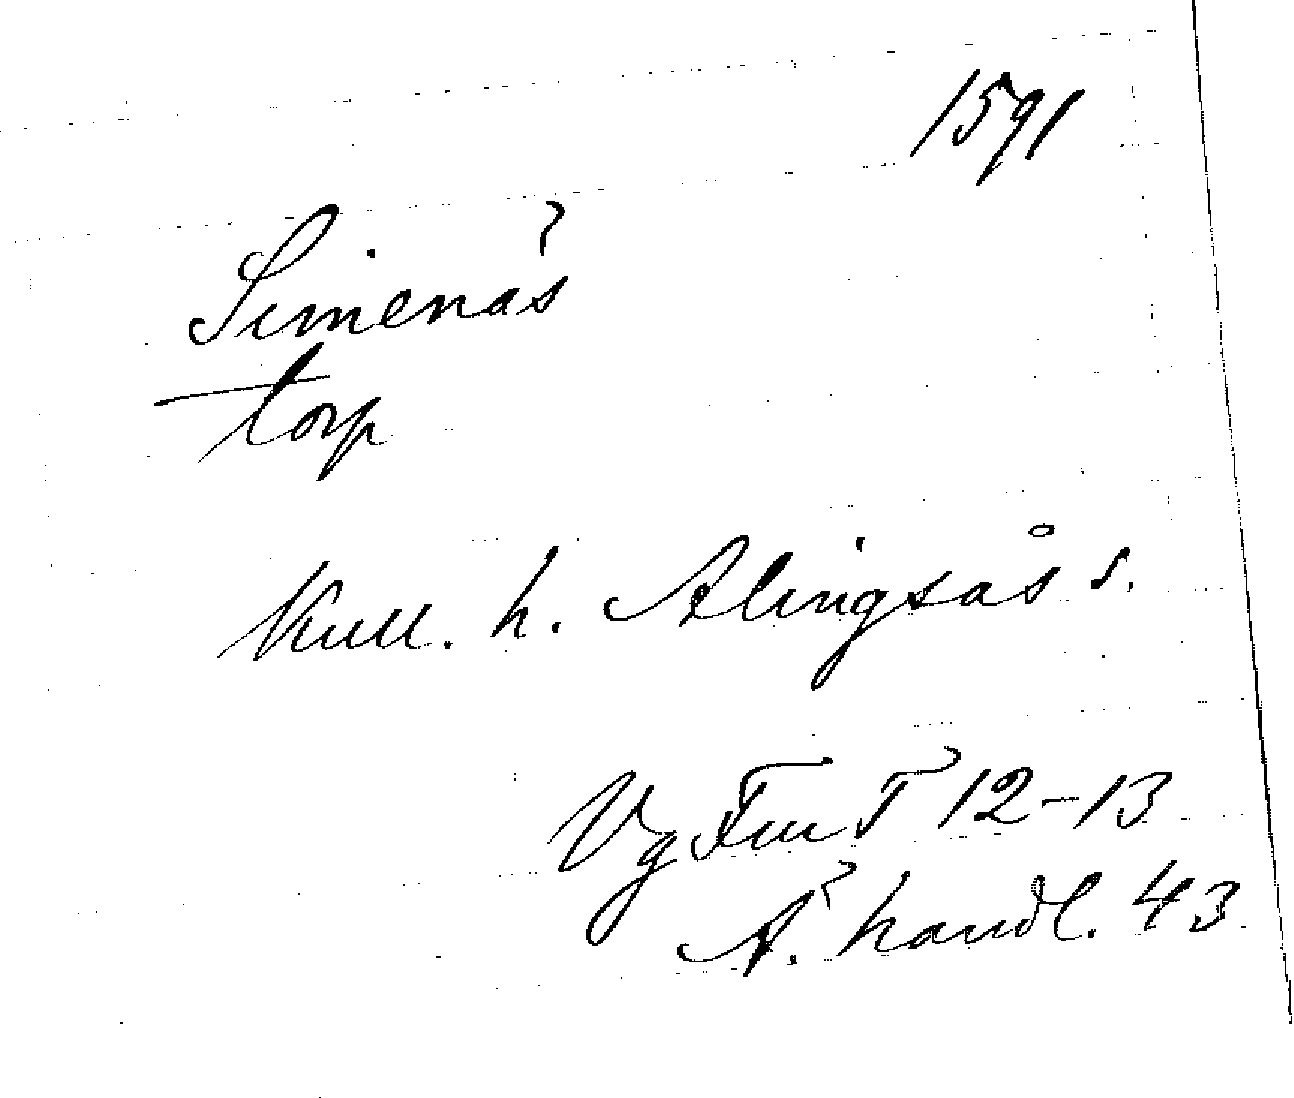 1591
Simenäs
torp
Kull. h. Alingsås s.
Vg Fm T 12-13
Ä. handl. 43